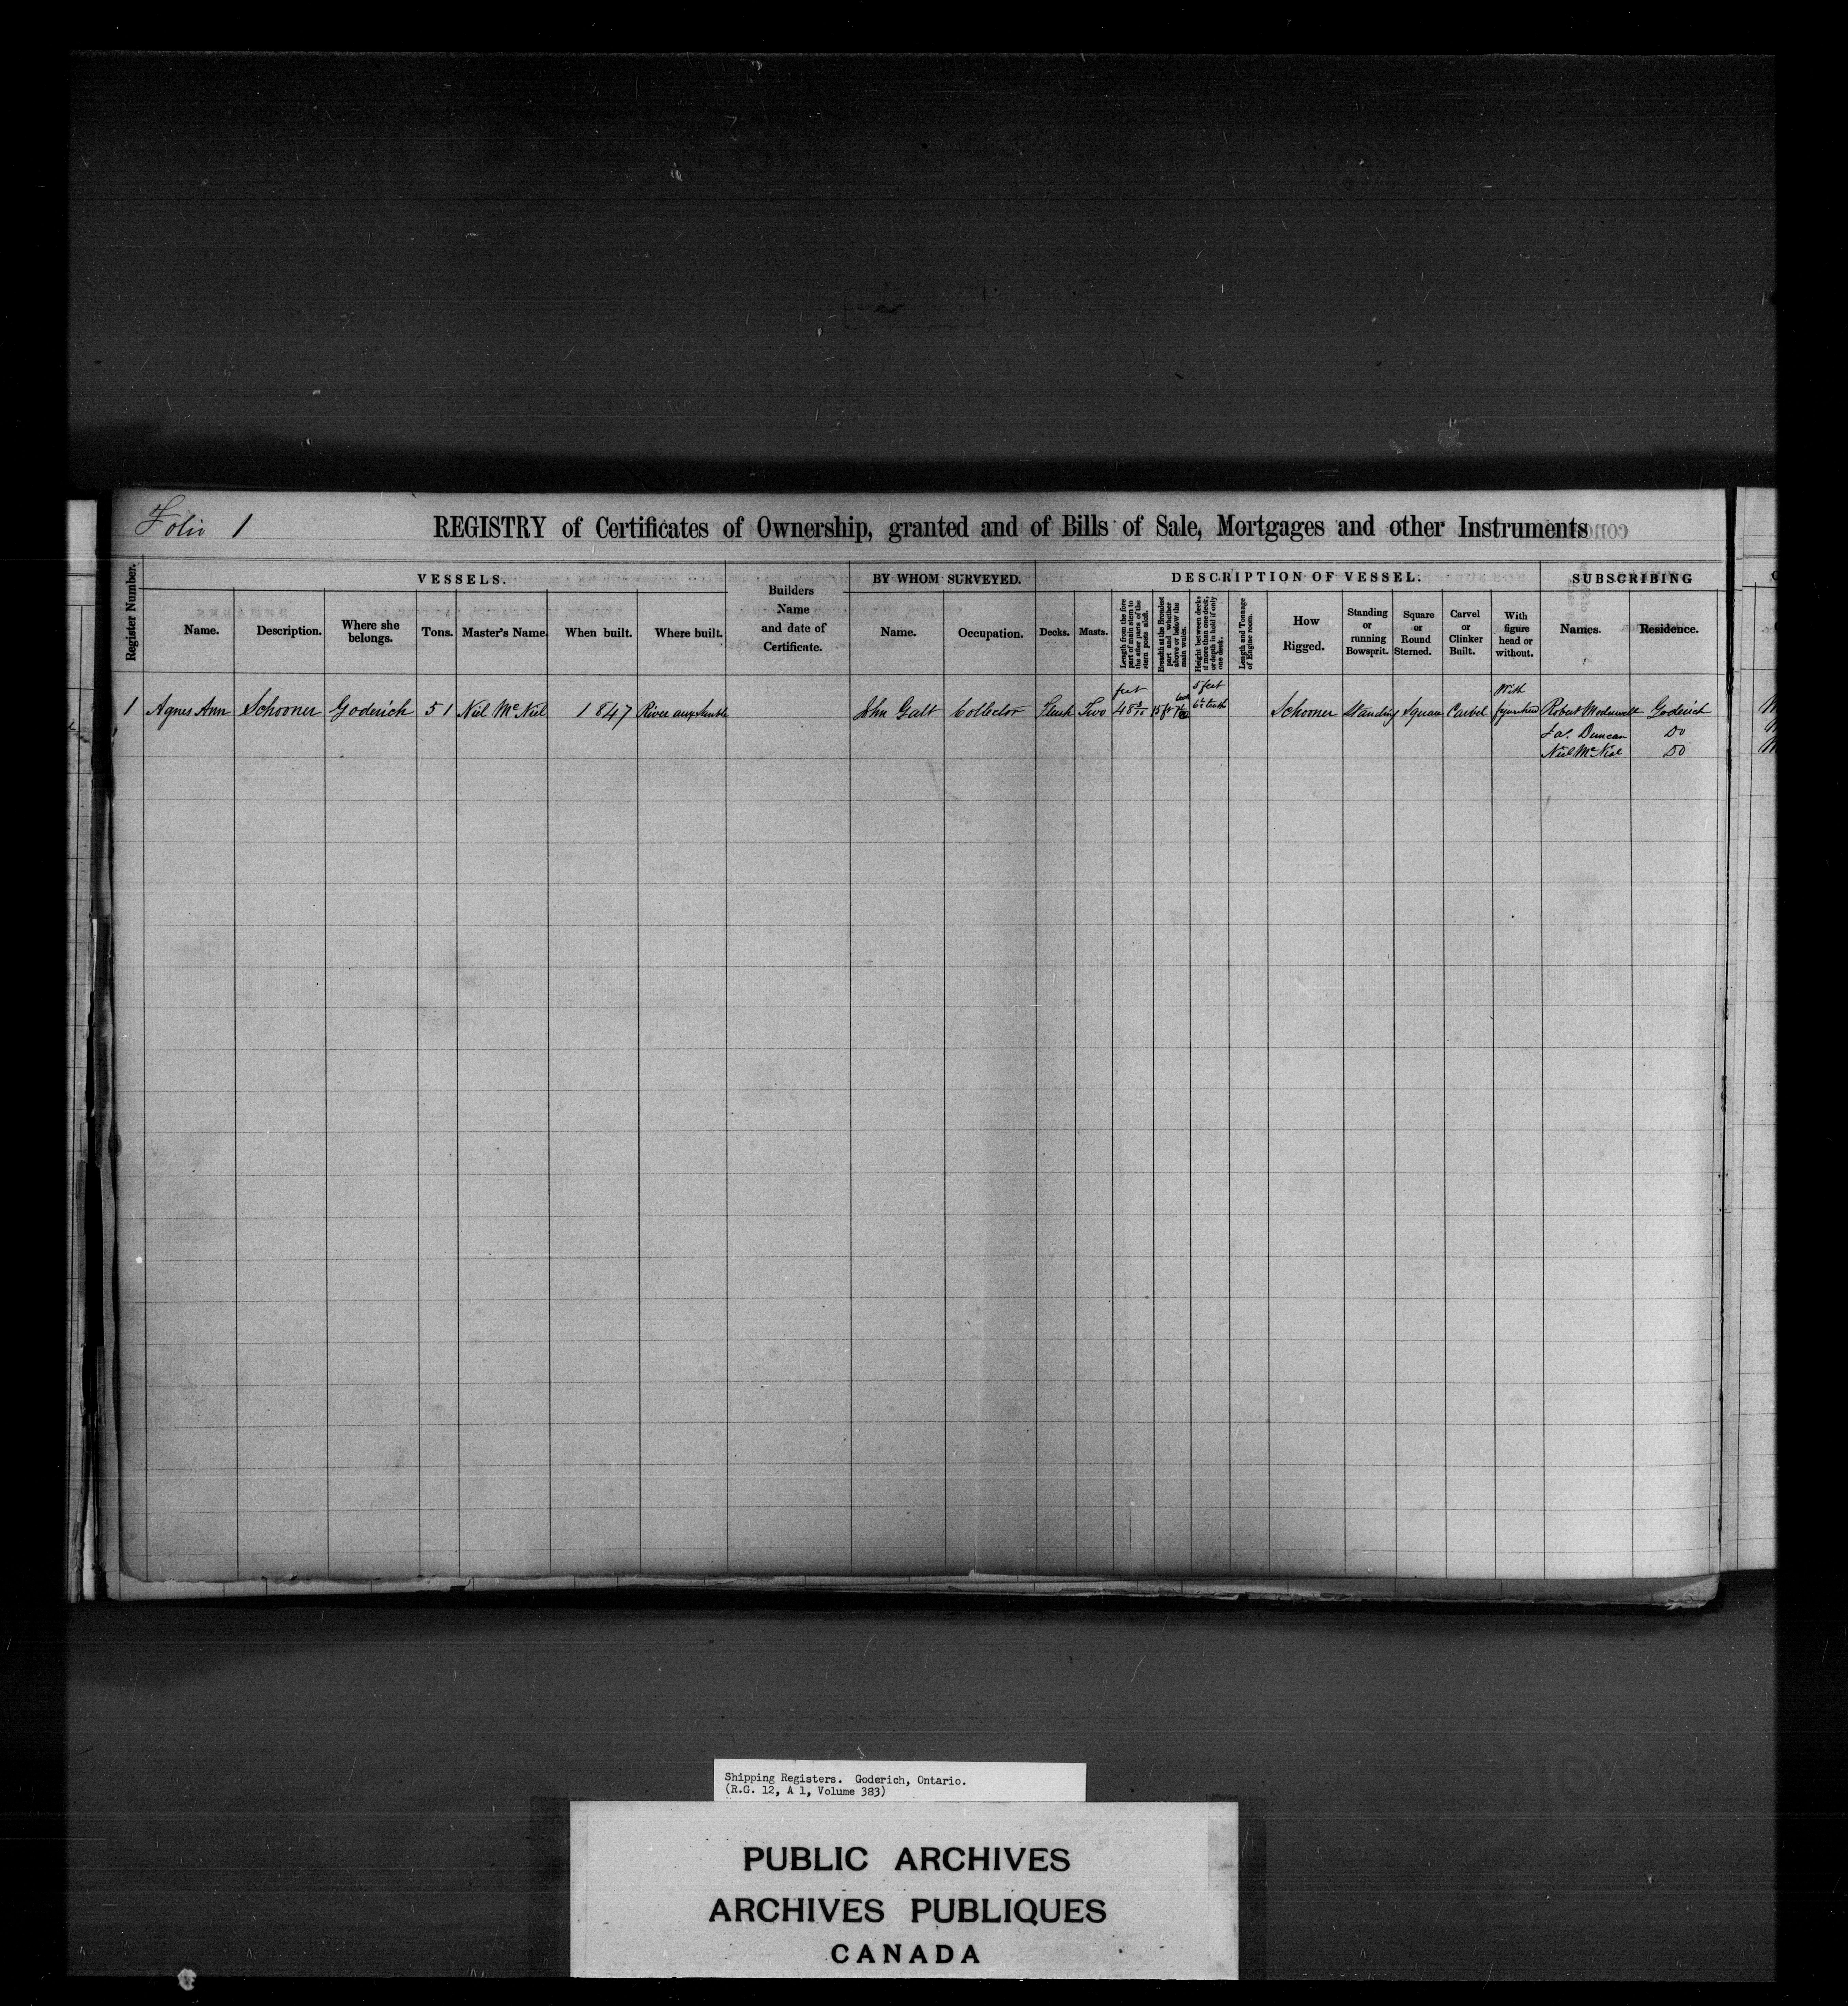 Folio 1
REGISTRY of Certificates of Ownership, granted and of Bills of Sale, Mortgages and other Instruments
Register Number.
VESSELS.
Name.
Description.
Where she belongs.
Tons.
Master's Name.
When built.
Where built.
Builders
Name
and date of
Certificate.
BY WHOM SURVEYED.
Name.
Occupation.
DESCRIPTION OF VESSEL.
Decks.
Masts.
Length from the fore
part of main stem to
the after parts of the
stern posts aloft.
Breadth at the Broadest
part and whether
above or below the
main wales.
Height between decks
if more than one deck;
or depth in hold if only
one deck.
Length and Tonnage
of Engine room.
How
Rigged.
Standing
or
running
Bowsprit.
Square
or
Round
Sterned.
Carvel
or
Clinker
Built.
With
figure
head or
without.
SUBSCRIBING
Names.
Residence.
1 Agnes Ann Schooner Goderich 51 Niel McNiel 1847 River aux Sauble John Galt Collector Flush Two feet 48 5 feet Schooner Standing Square Carvel With figurehead Robert Moderwell Goderich
Jas. Duncan Do
Niel McNiel Do
Shipping Registers. Goderich, Ontario.
(R.G. 12, A 1, Volume 383)
PUBLIC ARCHIVES
ARCHIVES PUBLIQUES
CANADA